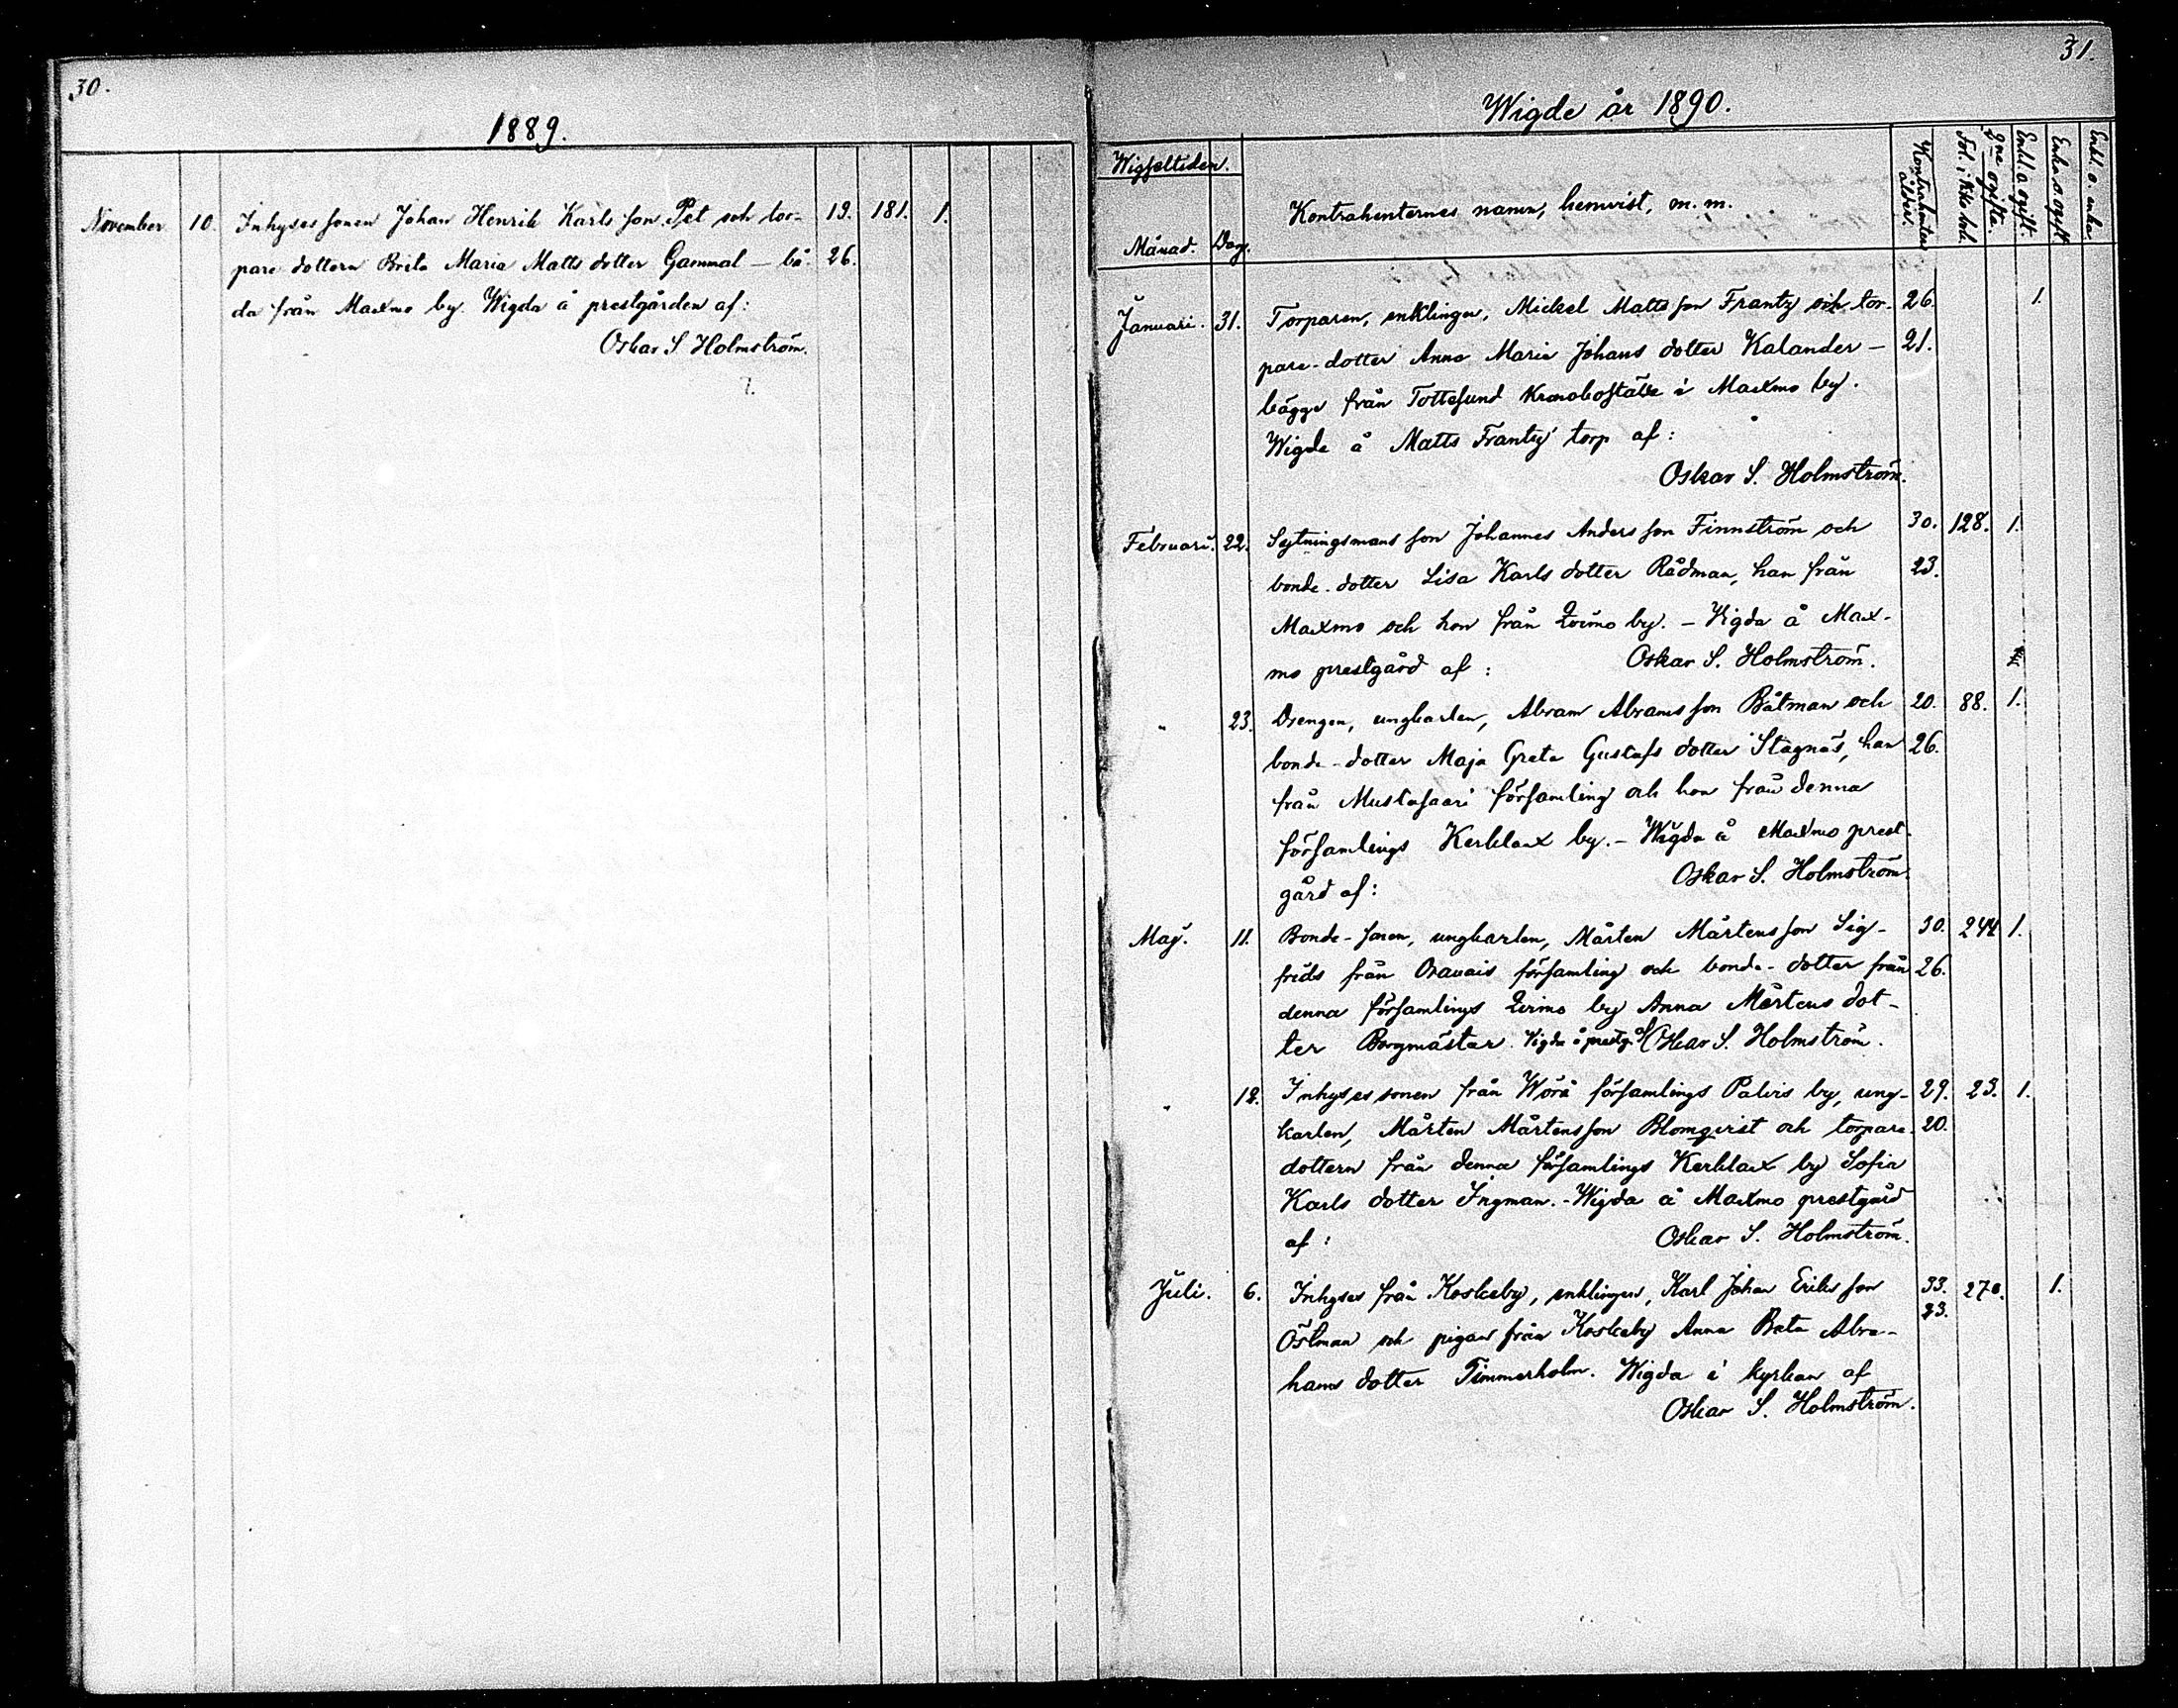 30.
1889.
November 10. Inhysessonen Johan Henrik Karlsson Pet och tor- 19. 181. 1.
pare dottern Brita Maria Matts dotter Gammal — bå- 26.
da från Maxmo by. Wigda å prestgården af:
Oskar S. Holmström.
7.
31.
Wigde år 1890.
Wigseltiden.
Månad. Dag.
Kontrahenternas namn, hemvist, m. m.
Kontrahenternas ålder.
Fol. i kko bok.
2ne ogifta.
Enkl. o. ogift.
Enka o. ogift.
Enkl. o. enka
Januari. 31. Torparen, enklingen, Mickel Mattsson Frantz och tor- 26. 1.
pare-dotter Anna Maria Johans dotter Kalander — 21.
bägge från Tottesund Kronoboställe i Maxmo by.
Wigda å Matts Frantz' torp af:
Oskar S. Holmström.
Februari. 22. Sytningsmans son Johannes Andersson Finnström och 30. 128. 1.
bonde-dotter Lisa Karls dotter Rådman, han från 23.
Maxmo och hon från Qvimo by. — Vigda å Max-
mo prestgård af: Oskar S. Holmström.
" 23. Drengen, ungkarlen, Abram Abramsson Båtman och 20. 88. 1.
bonde-dotter Maja Greta Gustafs dotter Stagnäs, han 26.
från Mustasaari församling och hon från denna
församlings Kerklax by. — Wigda å Maxmo prest-
gård af: Oskar S. Holmström.
Maj. 11. Bonde-sonen, ungkarlen, Mårten Mårtensson Sig- 30. 244 1.
frids från Oravais församling och bonde-dotter från 26.
denna församlings Qvimo by Anna Mårtens dot-
ter Borgmästar. Vigda å prestg. af Oskar S. Holmström.
" 12. Inhysessonen från Wörå församlings Palvis by, ung- 29. 23. 1.
karlen, Mårten Mårtensson Blomqvist och torpare- 20.
dottern från denna församlings Kerklax by Sofia
Karls dotter Ingman. - Wigda å Maxmo prestgård
af: Oskar S. Holmström.
Juli. 6. Inhyses från Koskeby, enklingen, Karl Johan Eriksson 33. 270. 1.
Östman och pigan från Koskeby Anna Beta Abra- 23.
hams dotter Timmerholm. Wigda i kyrkan af
Oskar S. Holmström.